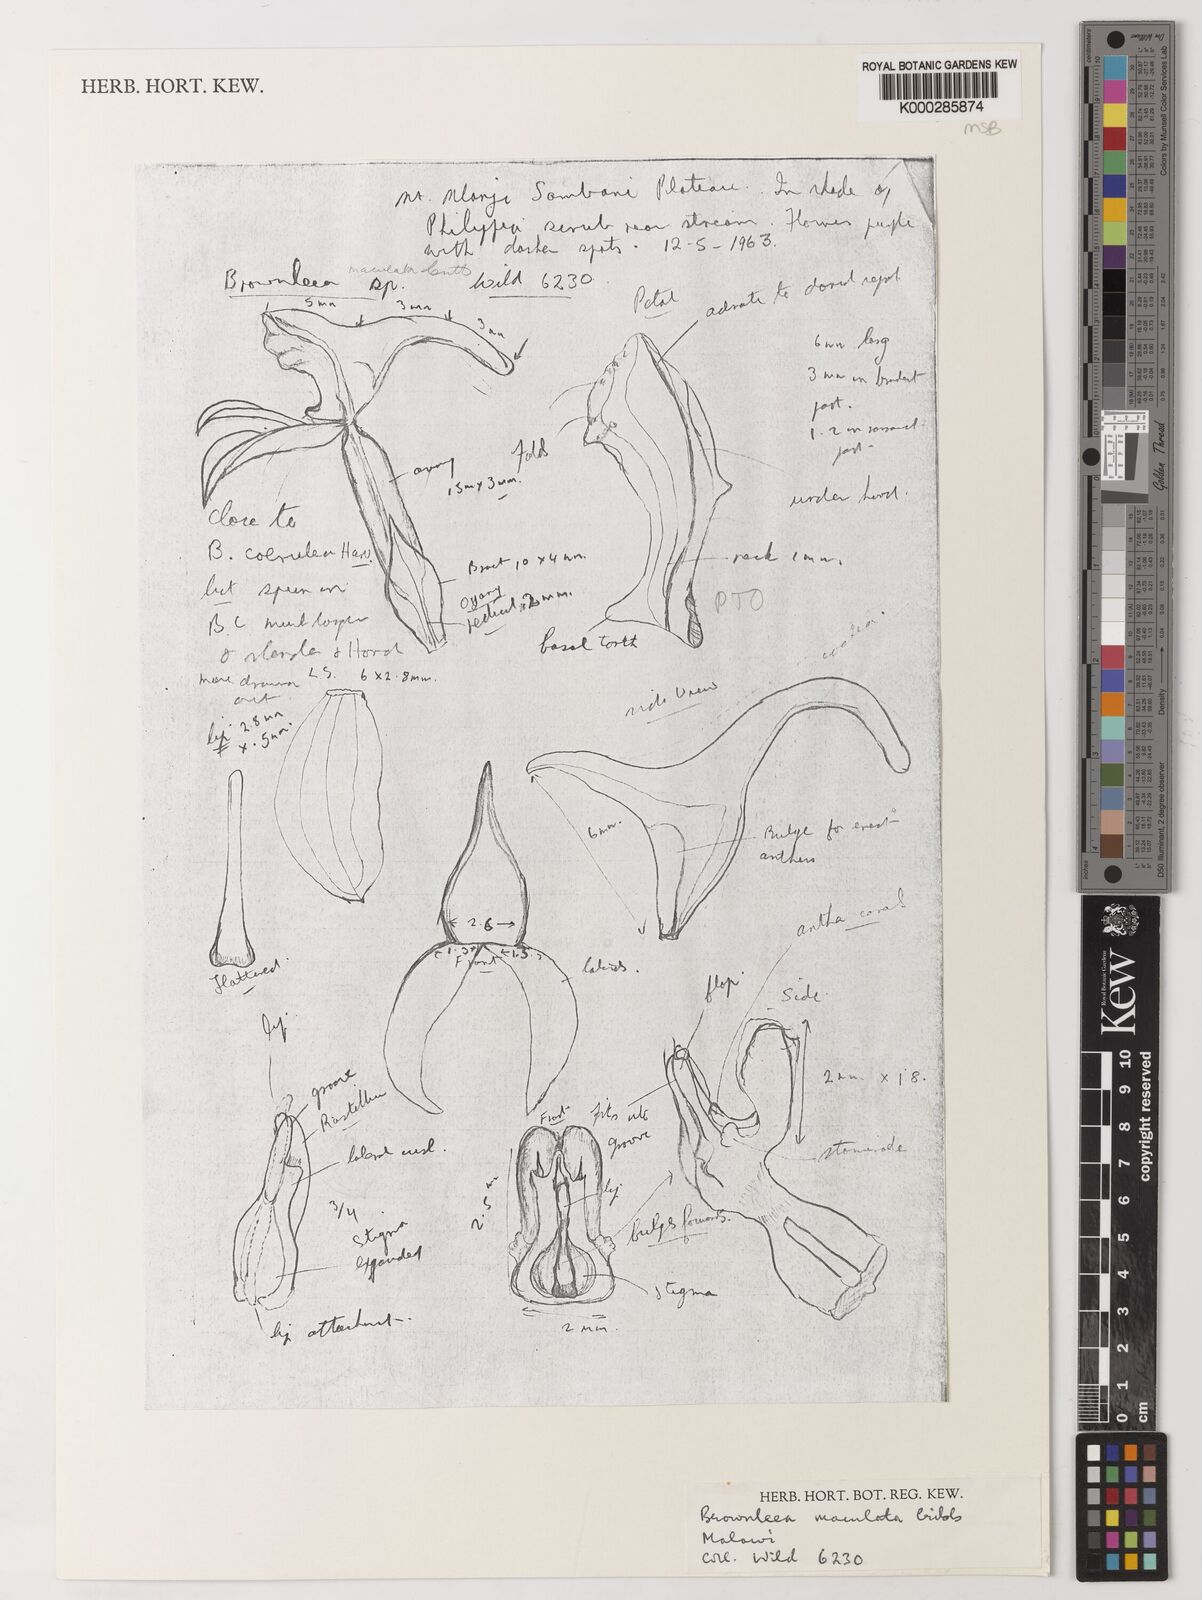 HERB. HORT. KEW.
ROYAL BOTANIC GARDENS KEW
K000285874
MSB
Mt. Mlanje Sombani Plateau. In shade of
Philippia scrub near stream. Flowers purple
with darker spots. 12-5-1963.
Brownleea sp. Wild 6230
maculata
5mm
3mm
3mm
Petal
adnate to dorsal sepal
6mm long
3mm in broadest
part.
1.2 in narrowest
part
ovary
15m x 3mm.
Folds
under hood.
Close to
B. coerulea Harv.
but spur in
B.C. much longer
& slender & Hood
more drawn
out
Bract 10 x 4mm.
Ovary
neck 1mm.
PTO
basal tooth
L.S. 6 x 2.8mm.
lip 2.8mm
x .5mm.
side view
6mm.
Bulge for erect
anthers
2.6
1.3
1.5
Front
laterals.
Flattened.
anther canal
flap
Side
lip
groove
Rostellum
lateral
3/4
Stigma
expanded
lip attachment.
Front
fits into
groove
2.5m
lip
bulges forwards.
stigma
2mm.
2mm. x 1.8.
staminode
HERB. HORT. BOT. REG. KEW.
Brownleea maculata Cribb
Malawi
Coll. Wild 6230
Kew
Royal Botanic Gardens
copyright reserved
0 1 2 3 4 5 6 7 8 9 10
cm
centimeters
inches
Colors by Munsell Color Services Lab
Golden Thread
Density
D50 Illuminant, 2 degree observer